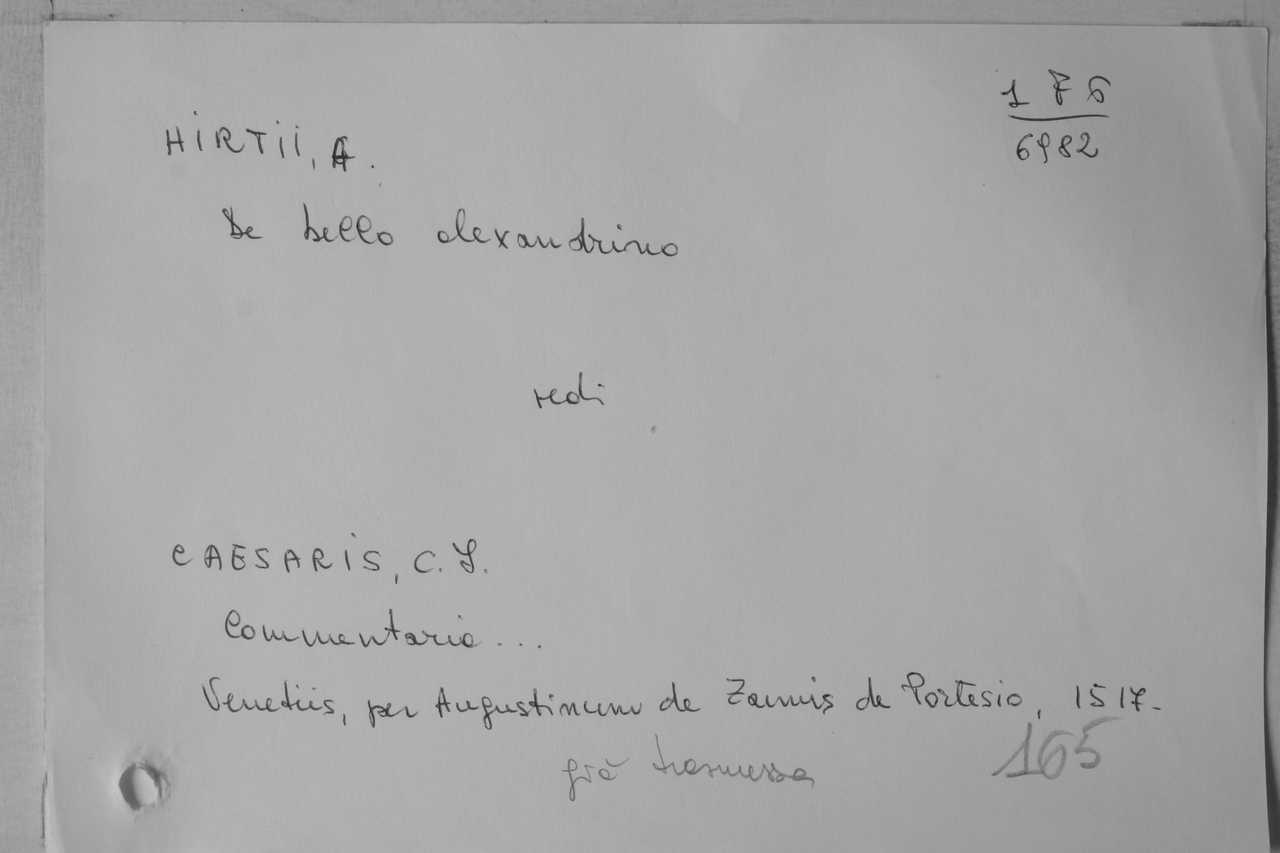 HIRTII, A.
1 7 6
6982
De bello alexandrino
vedi
CAESARIS, C. J.
Commentaria ...
Venetiis, per Augustinum de Zannis de Portesio, 1517.
già trasmessa
165